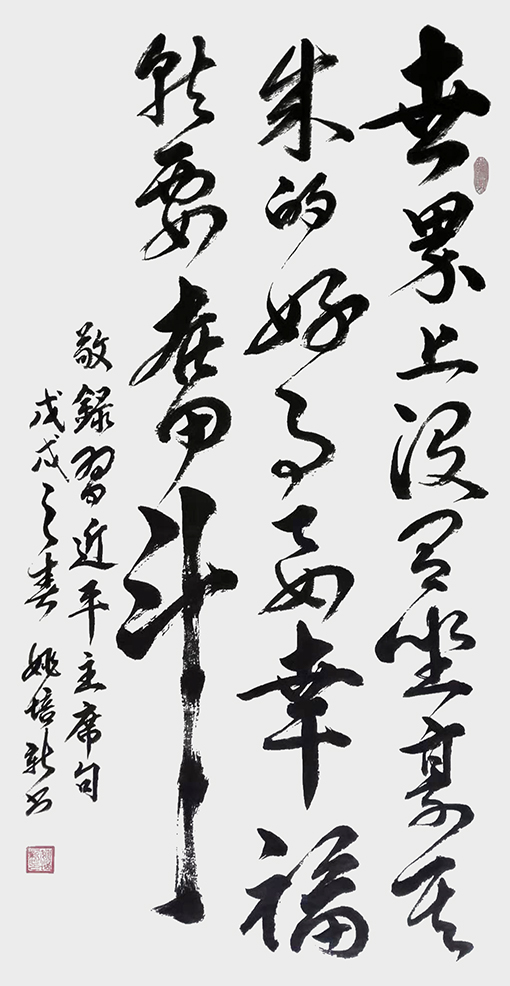 世界上没有坐享其
成的好事要幸福
就要奋斗
敬録習近平主席句
戊戌之春 姚培新书